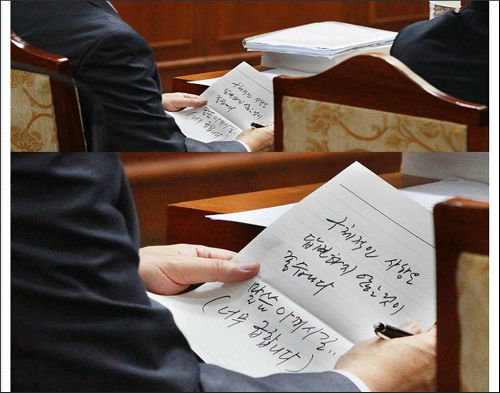 구체적인 사항은
답변하지 않는것이
좋습니다
말씀 아끼시길..
(너무 급합니다)